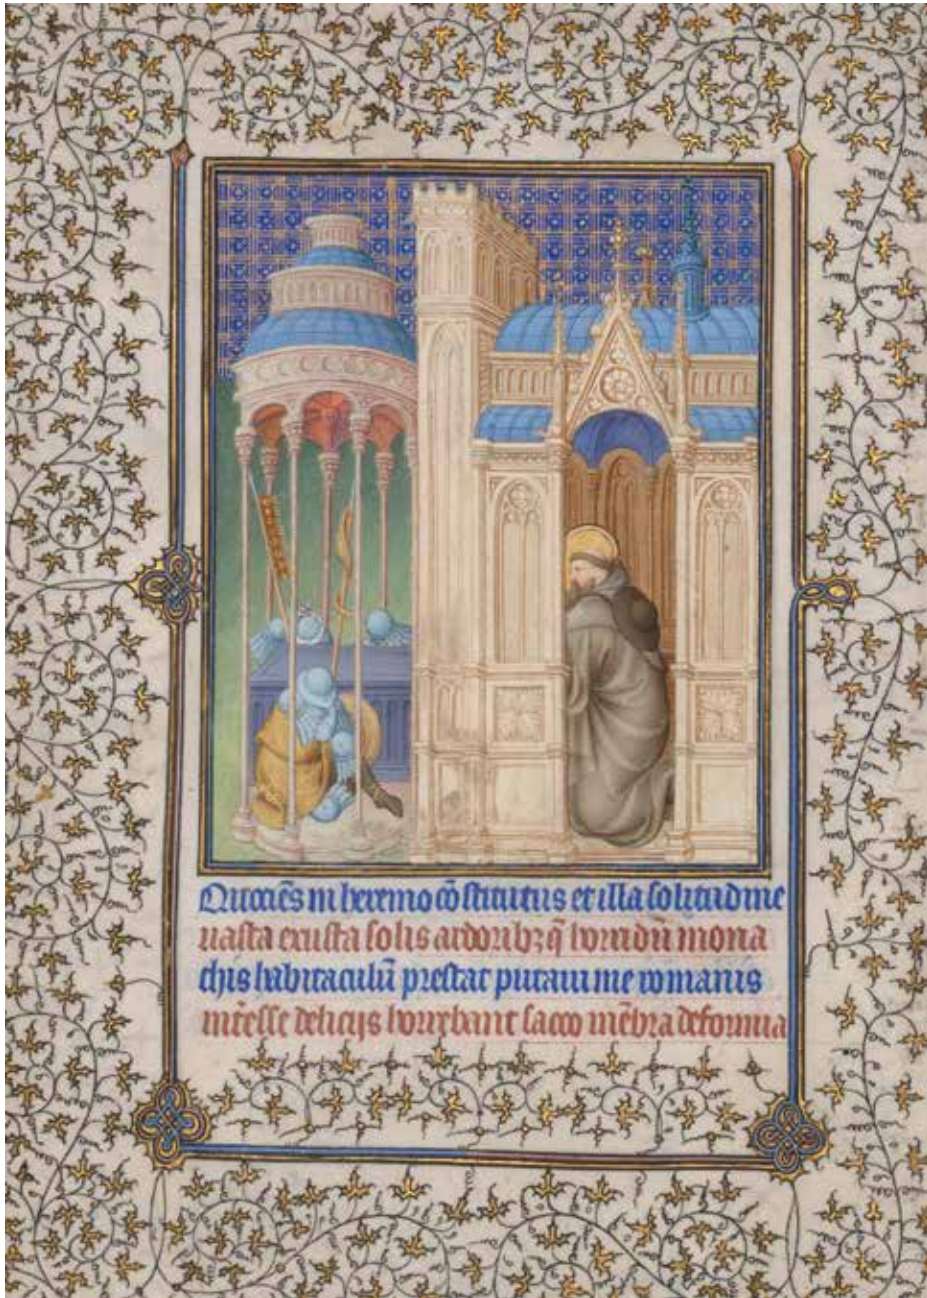 Quociēs in heremo cōstitutus et illa solitudine
uasta exusta solis ardoribꝫ q̄ horridū mona
chis habitaculū prestat putaui me romanis
int̄esse delicijs horrebant sacco mēbra deformia